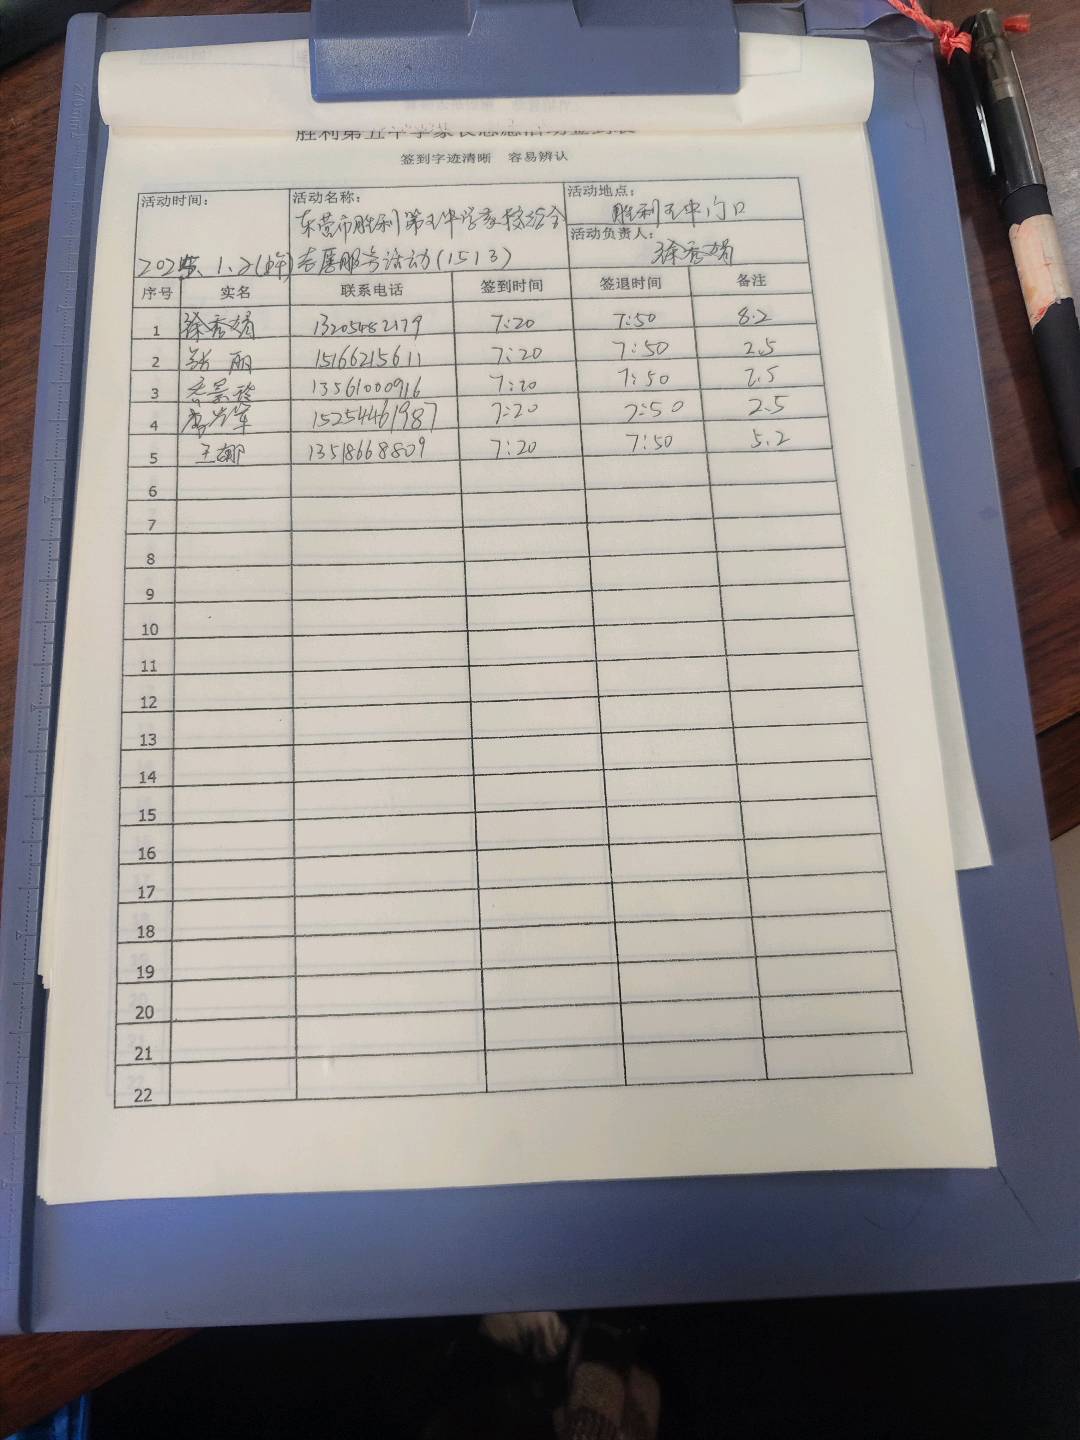 胜利第五中学家长志愿活动签到表
签到字迹清晰 容易辨认
活动时间: 活动名称: 活动地点:
东营市胜利第五中学家校综合 胜利五中门口
活动负责人:
1.2 志愿服务活动(1513) 徐秀娟
序号 实名 联系电话 签到时间 签退时间 备注
1 徐秀娟 13205482179 7:20 7:50 8.2
2 张丽 15166215611 7:20 7:50 2.5
3 13561000916 7:20 7:50 2.5
4 15254461987 7:20 7:50 2.5
5 王娜 13518668809 7:20 7:50 5.2
6
7
8
9
10
11
12
13
14
15
16
17
18
19
20
21
22